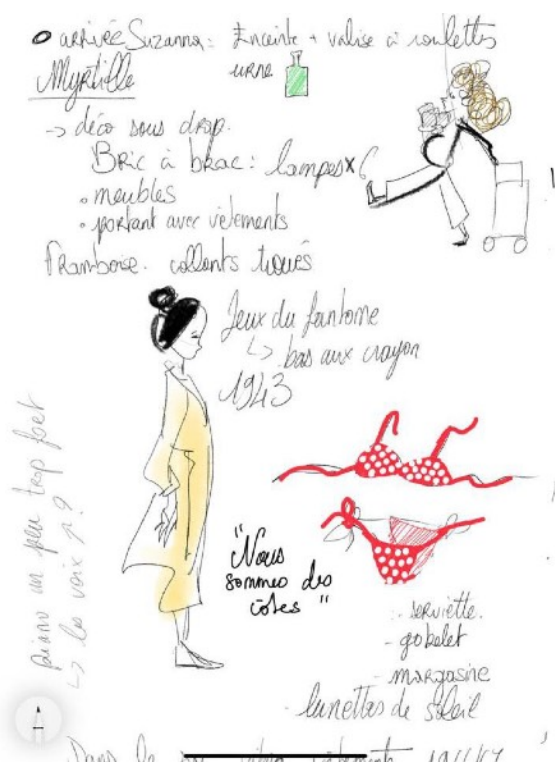 arrivée Suzanna: Enceinte + valise à roulettes
Myrtille urne
-> déco sous drap.
Bric à brac: lampes x 6
• meubles
• portant avec vêtements
Framboise. collants troués
Jeux du fantome
↳ bas aux crayon
1943
piano un peu trop fort
↳ les voix ?
"Nous
sommes des
côtes"
- serviette.
- gobelet
- margasine
- lunettes de soleil
Dans le